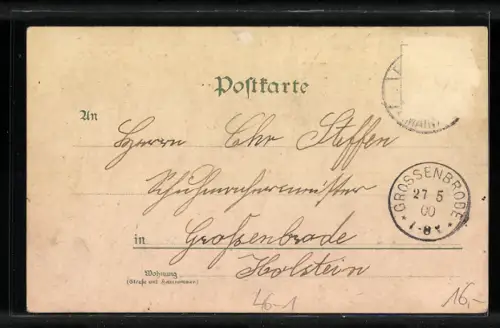 Postkarte
An
Herrn Chr Steffen
Schuhmachermeister
in Großenbrode
Holstein
Wohnung
(Straße und Hausnummer)
GROSSENBRODE
27 5
00
7-8V.
46-1
16,-